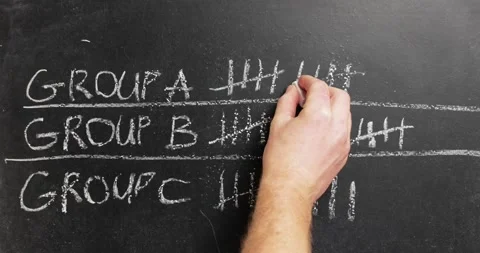 GROUP A
GROUP B
GROUP C